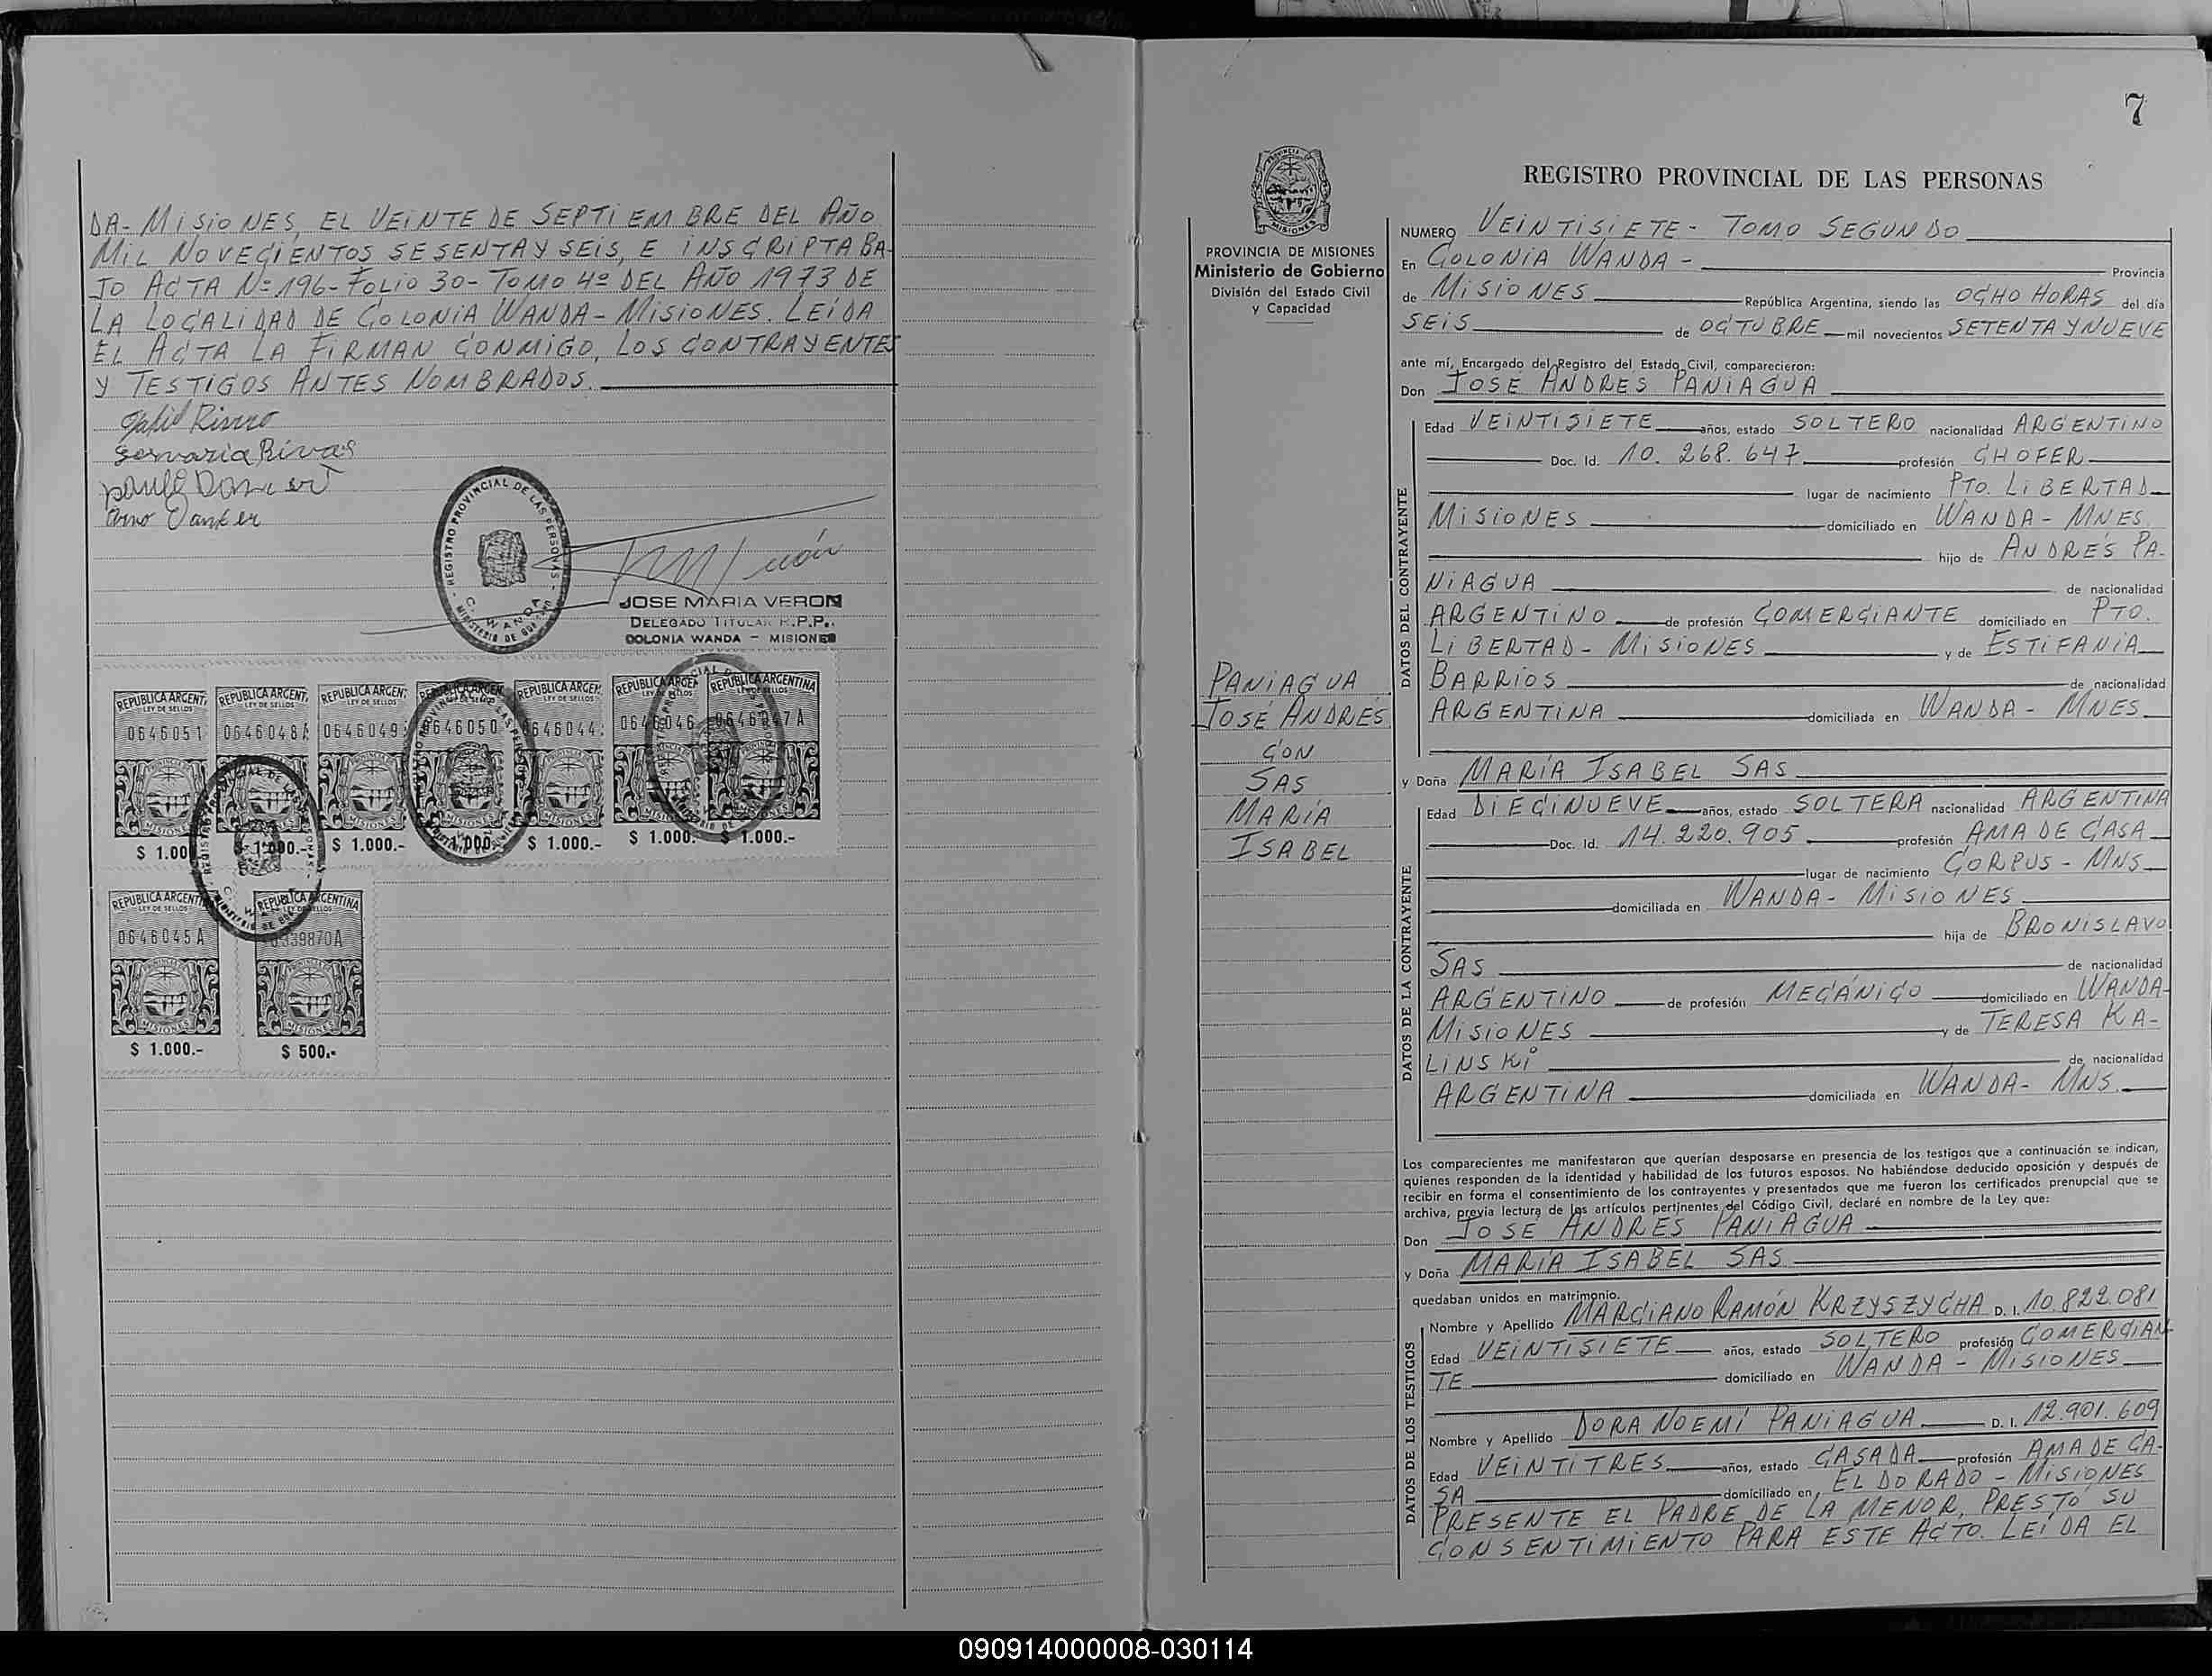 DA- MISIONES, EL VEINTE DE SEPTIEMBRE DEL AÑO
MIL NOVECIENTOS SESENTA Y SEIS, E INSCRIPTA BA-
JO ACTA Nº 196- FOLIO 30- TOMO 4º DEL AÑO 1973 DE
LA LOCALIDAD DE COLONIA WANDA- MISIONES. LEÍDA
EL ACTA LA FIRMAN CONMIGO, LOS CONTRAYENTES
Y TESTIGOS ANTES NOMBRADOS.
JOSE MARIA VERON
DELEGADO TITULAR R.P.P..
COLONIA WANDA - MISIONES
REGISTRO PROVINCIAL DE LAS PERSONAS -
C. WANDA
MINISTERIO DE GOBIERNO
REPUBLICA ARGENTI REPUBLICA ARGENT. REPUBLICA ARGEN. REPUBLICA ARGEN REPUBLICA ARGEN. REPUBLICA ARGEN REPUBLICA ARGENTINA
LEY DE SELLOS LEY DE SELLOS LEY DE SELLOS LEY DE SELLOS LEY DE SELLOS
0646051 0646048A 0646049 0646050 0646044 0646046 0646047A
MISIONES MISIONES MISIONES MISIONES MISIONES
$ 1.00 $ 1.000.- $ 1.000.- 1.000.- $ 1.000.- $ 1.000.- $ 1.000.-
REPUBLICA ARGENTI REPUBLICA ARGENTINA
LEY DE SELLOS LEY DE SELLOS
0646045A 0339870A
MISIONES MISIONES
$ 1.000.- $ 500.-
7
PROVINCIA DE MISIONES
Ministerio de Gobierno
División del Estado Civil
y Capacidad
PANIAGUA
JOSÉ ANDRES
CON
SAS
MARÍA
ISABEL
REGISTRO PROVINCIAL DE LAS PERSONAS
NUMERO VEINTISIETE- TOMO SEGUNDO
En COLONIA WANDA - Provincia
de MISIONES República Argentina, siendo las OCHO HORAS del día
SEIS de OCTUBRE mil novecientos SETENTA Y NUEVE
ante mí, Encargado del Registro del Estado Civil, comparecieron:
Don JOSE ANDRES PANIAGUA
DATOS DEL CONTRAYENTE
Edad VEINTISIETE años, estado SOLTERO nacionalidad ARGENTINO
Doc. Id. 10.268.647 profesión CHOFER
lugar de nacimiento PTO. LIBERTAD
MISIONES domiciliado en WANDA- MNES
hijo de ANDRÉS PA-
NIAGUA de nacionalidad
ARGENTINO de profesión COMERCIANTE domiciliado en PTO.
LIBERTAD- MISIONES y de ESTIFANIA
BARRIOS de nacionalidad
ARGENTINA domiciliada en WANDA- MNES
y Doña MARÍA ISABEL SAS
DATOS DE LA CONTRAYENTE
Edad DIECINUEVE años, estado SOLTERA nacionalidad ARGENTINA
Doc. Id. 14.220.905 profesión AMA DE CASA
lugar de nacimiento CORPUS- MNS
domiciliada en WANDA- MISIONES
hija de BRONISLAVO
SAS de nacionalidad
ARGENTINO de profesión MECÁNICO domiciliado en WANDA-
MISIONES y de TERESA KA-
LINSKI de nacionalidad
ARGENTINA domiciliada en WANDA- MNS.
Los comparecientes me manifestaron que querían desposarse en presencia de los testigos que a continuación se indican,
quienes responden de la identidad y habilidad de los futuros esposos. No habiéndose deducido oposición y después de
recibir en forma el consentimiento de los contrayentes y presentados que me fueron los certificados prenupcial que se
archiva, previa lectura de los artículos pertinentes del Código Civil, declaré en nombre de la Ley que:
Don JOSÉ ANDRES PANIAGUA
y Doña MARÍA ISABEL SAS
quedaban unidos en matrimonio.
DATOS DE LOS TESTIGOS
Nombre y Apellido MARCIANO RAMÓN KRZYSZYCHA D. I. 10.822.081
Edad VEINTISIETE años, estado SOLTERO profesión COMERCIAN
TE domiciliado en WANDA- MISIONES
Nombre y Apellido DORA NOEMÍ PANIAGUA D. I. 12.901.609
Edad VEINTITRES años, estado CASADA profesión AMA DE CA-
SA domiciliado en EL DORADO- MISIONES
PRESENTE EL PADRE DE LA MENOR, PRESTÓ SU
CONSENTIMIENTO PARA ESTE ACTO. LEÍDA EL
090914000008-030114